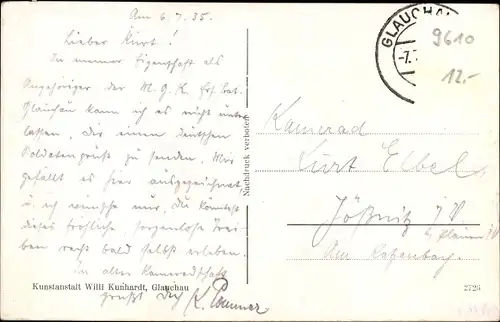 Am 6.7.35.
Lieber Kurt!
In meiner Eigenschaft als
Angehöriger der M.G.K. Ers. Bat.
Glauchau kann ich es nicht unter-
lassen, Dir einen deutschen
Soldatengruß zu senden. Mir
gefällt es hier ausgezeichnet,
u. ich wünsche nur, Du könntest
dieses fröhliche, sorgenlose Trei-
ben recht bald selbst erleben.
In alter Kameradschaft
grüßt Dich K.
Kunstanstalt Willi Kunhardt, Glauchau
Nachdruck verboten
GLAUCHAU
-7.
9610
12.-
Kamerad
Kurt Elbel
Jößnitz i/V.
b. Plauen i/V
Am
2726